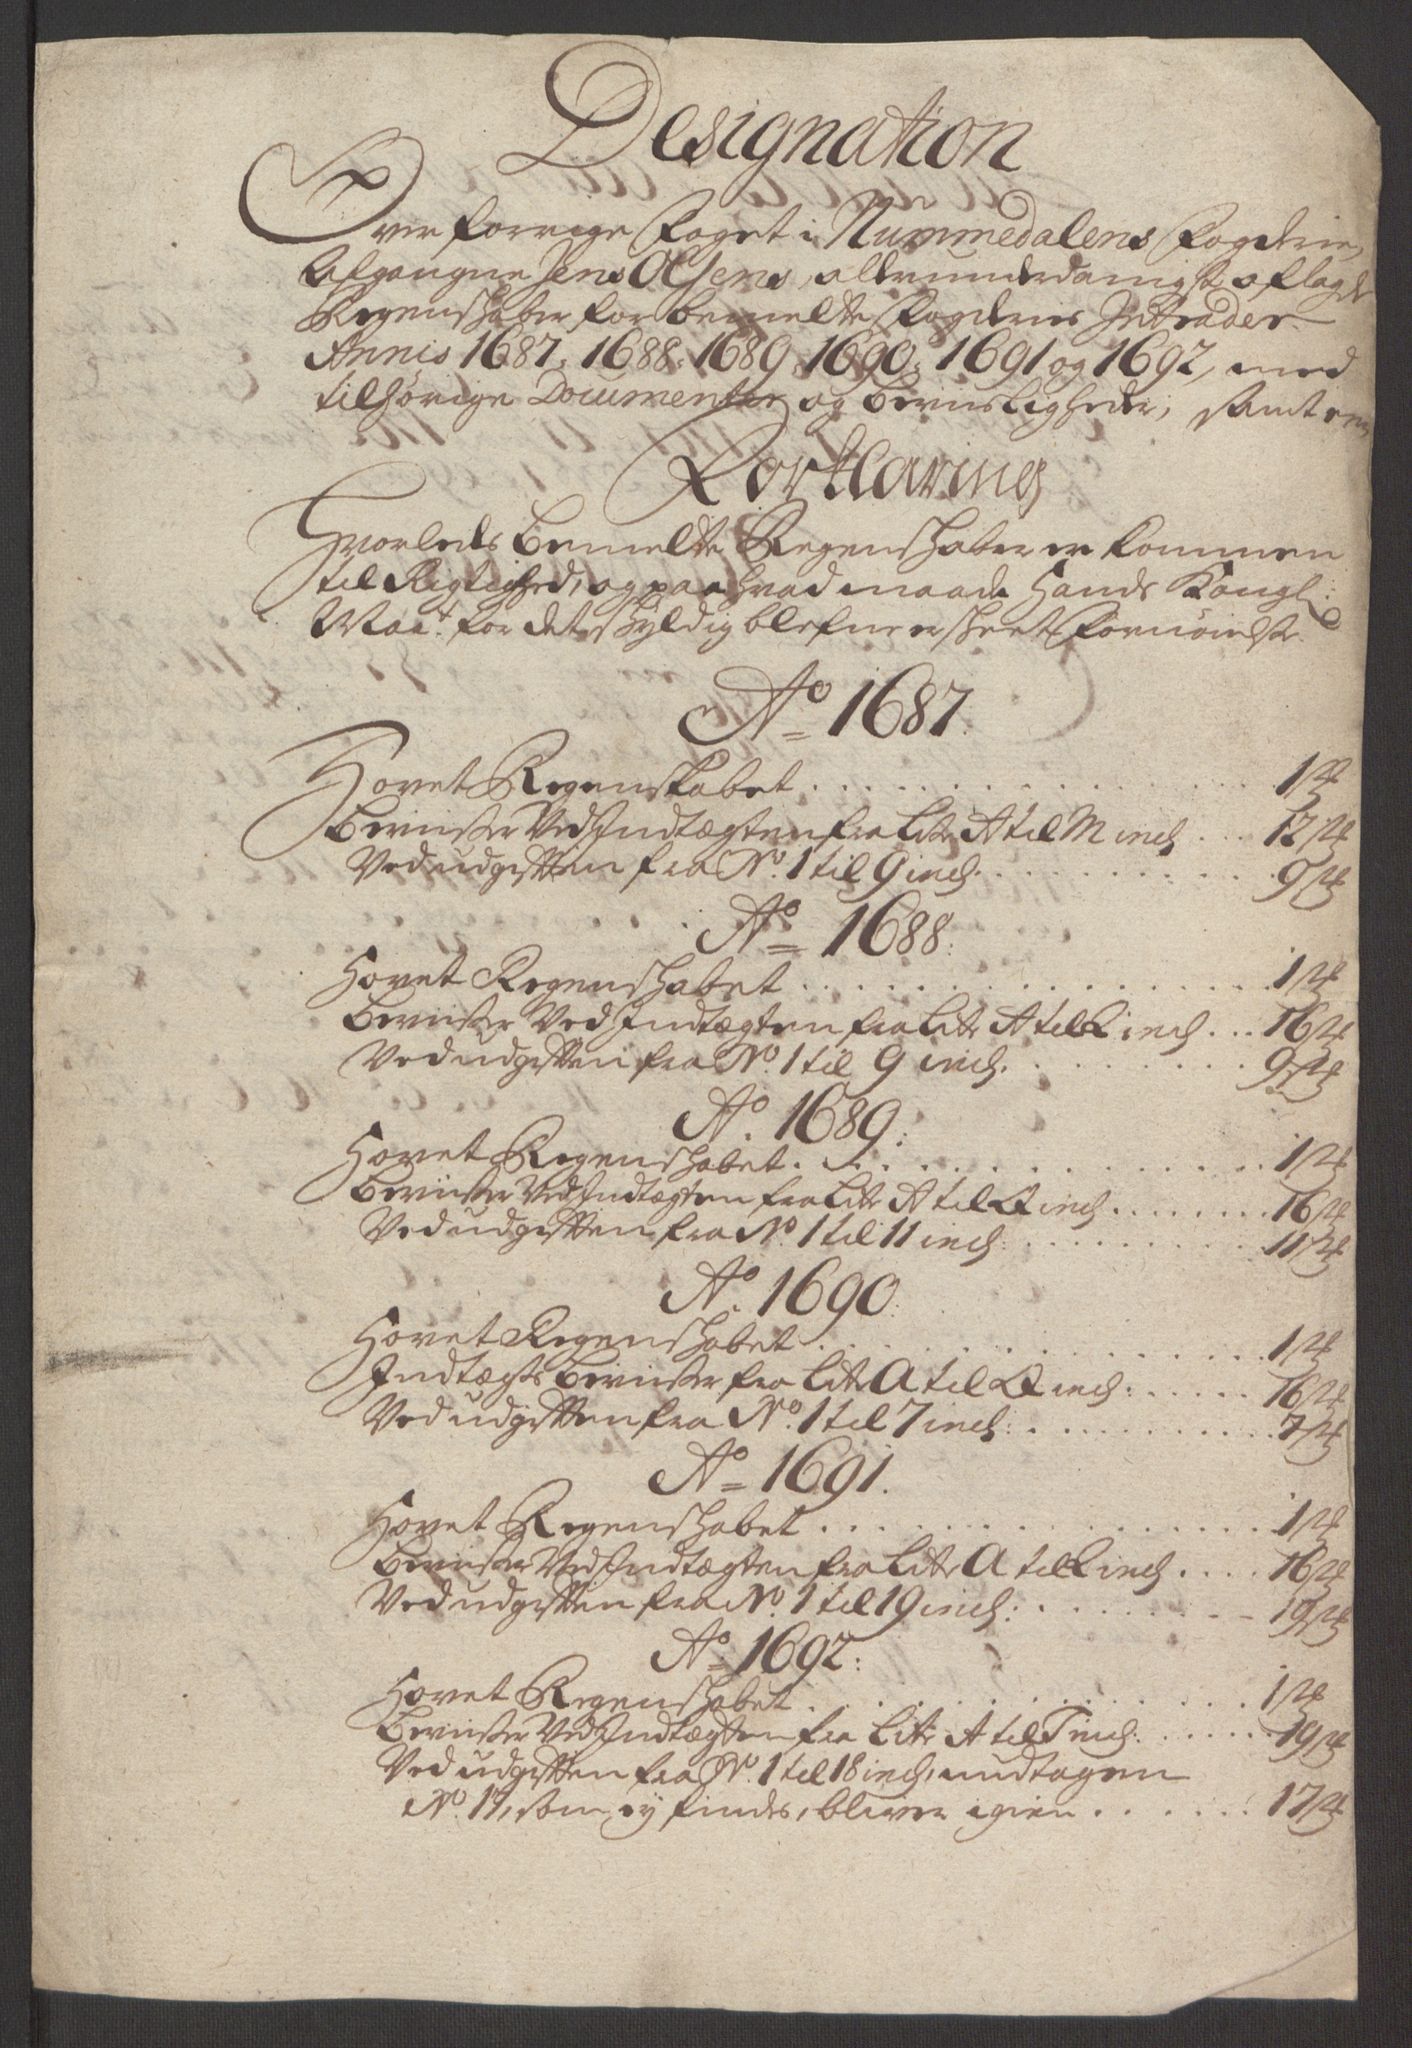 Designation
Over forrige Foget i Nummedalens Fogderie,
Afgangne Jens Olsens, allerunderdanigst aflagde
Regenschaber for bemelte Fogderies Intrader
Annis 1687, 1688, 1689, 1690, 1691 og 1692, med
tilhörige Documenter og Beviisligheder, samt een
Forklaring
Hvorleds bemelte Regenschaber er kommen
til Rigtighed, og paa hvad maade Hands Kongl:
Maÿt. for det schyldig blefne er scheet Fornöielse.
Ao 1687.
Hovet Regenskabet . . . . . 1 st
Beviiser Ved Indtægten fra Litr A til M incl . . 12 st
Ved udgiften fra No. 1 til 9 incl. . . . . 9 st
Ao 1688.
Hovet Regenschabet . . . . . 1 st
Beviiser Ved Indtægten fra Litr A til Q incl . . 16 st
Ved udgiften fra No. 1 til 9 incl. . . . . 9 st
Ao. 1689:
Hovet Regenschabet . . . . . 1 st
Beviiser Ved Indtægten fra Litr A til Q incl . . . . 16 st
Ved udgiften fra No. 1 til 11 incl: . . . . 11 st
Ao. 1690:
Hovet Regenschabet . . . . . 1 st
Indtægts Beviiser fra Litr A til Q incl: . . . . 16 st
Ved udgiften fra No. 1 til 7 incl: . . . . 7 st
Ao 1691.
Hovet Regenschabet . . . . . 1 st
Beviiser Ved Indtægten fra Litr A til Q incl . . . . 16 st
Ved udgiften fra No. 1 til 19 incl: . . . . 19 st
Ao 1692:
Hovet Regenschabet . . . . . 1 st
Beviiser Ved Indtægten fra Litr A til T incl: . . . . 19 st
Ved udgiften fra No. 1 til 18 incl, undtagen
No. 17, som ey findes, bliver igien . . . . 17 st